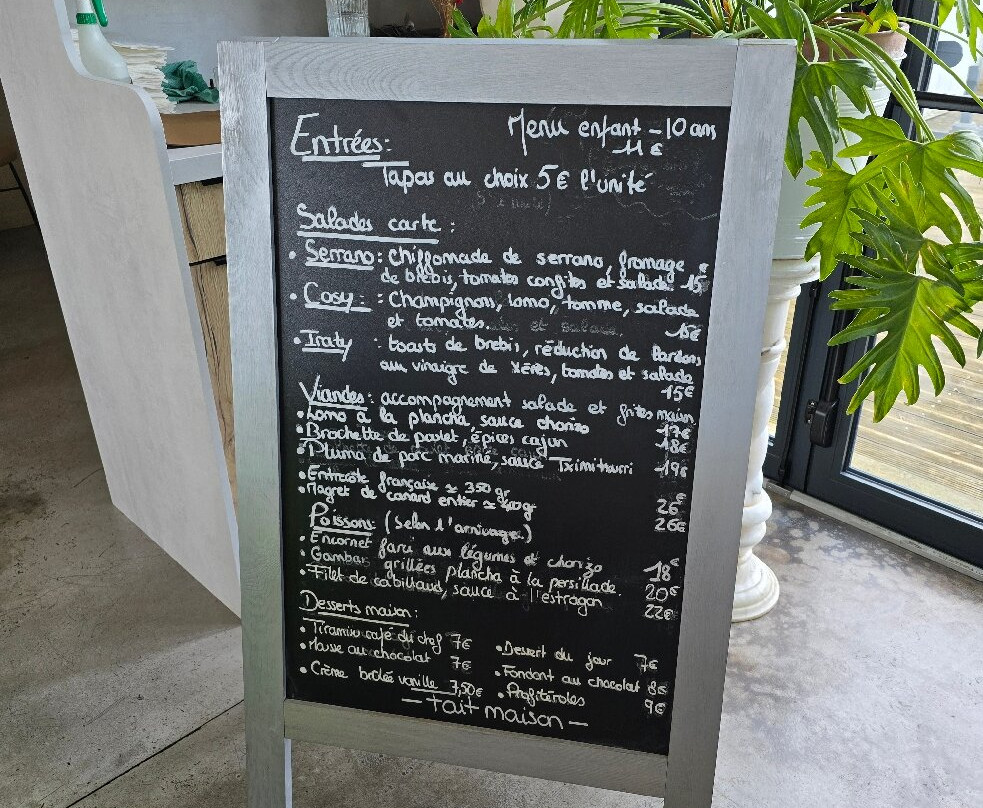 Entrées:
Menu enfant - 10 ans
11€
Tapas au choix 5€ l'unité
Salades carte :
• Serrano : chiffomade de serrano, fromage
de brebis, tomates confites et salade. 15€
• Cosy : : Champignons, lomo, tomme, salade
et tomates. 15€
• Iraty : toasts de brebis, réduction de lardons,
au vinaigre de Xérès, tomates et salade
15€
Viandes : accompagnement salade et frites maison
• Lomo à la plancha, sauce chorizo 17€
• Brochette de poulet, épices cajun 18€
• Pluma de porc mariné, sauce Tximitxurri 19€
• Entrecôte française ≃ 350 gr 26€
• Magret de canard entier ≃ 400 gr 26€
Poissons: (selon l'arrivage)
• Encornet farci aux légumes et chorizo 18€
• Gambas grillées plancha à la persillade. 20€
• Filet de cabillaud, sauce à l'estragon 22€
Desserts maison :
• Tiramisu café du chef 7€
• Dessert du jour 7€
• Mousse au chocolat 7€
• Fondant au chocolat 8€
• Crème brûlée vanille 7,50€
• Profitéroles 9€
- Fait maison -